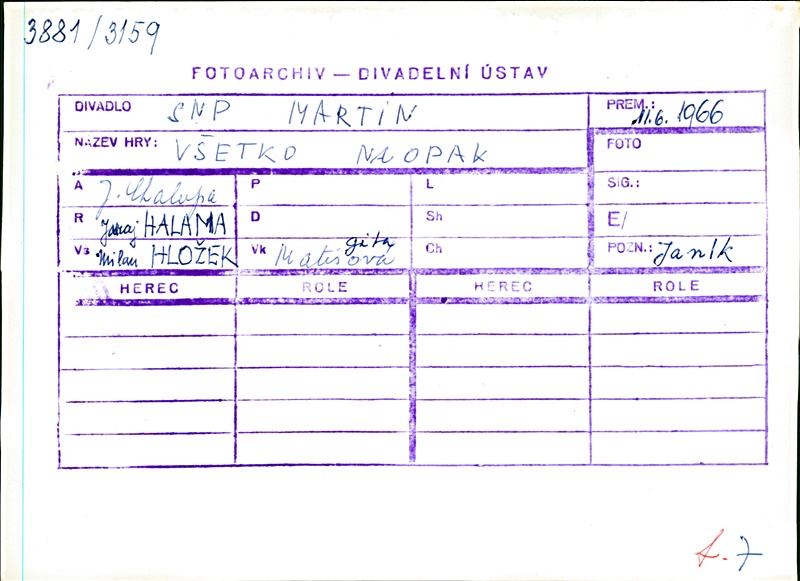 3881/3159
FOTOARCHIV — DIVADELNÍ ÚSTAV
DIVADLO SNP MARTIN PREM.: 11.6. 1966
NÁZEV HRY: VŠETKO NAOPAK FOTO
A J. Chalupa P L SIG.:
R Juraj HALAMA D Sh E/
Vs Milan HLOŽEK Vk Matisová Gita Ch POZN.: Janík
HEREC ROLE HEREC ROLE